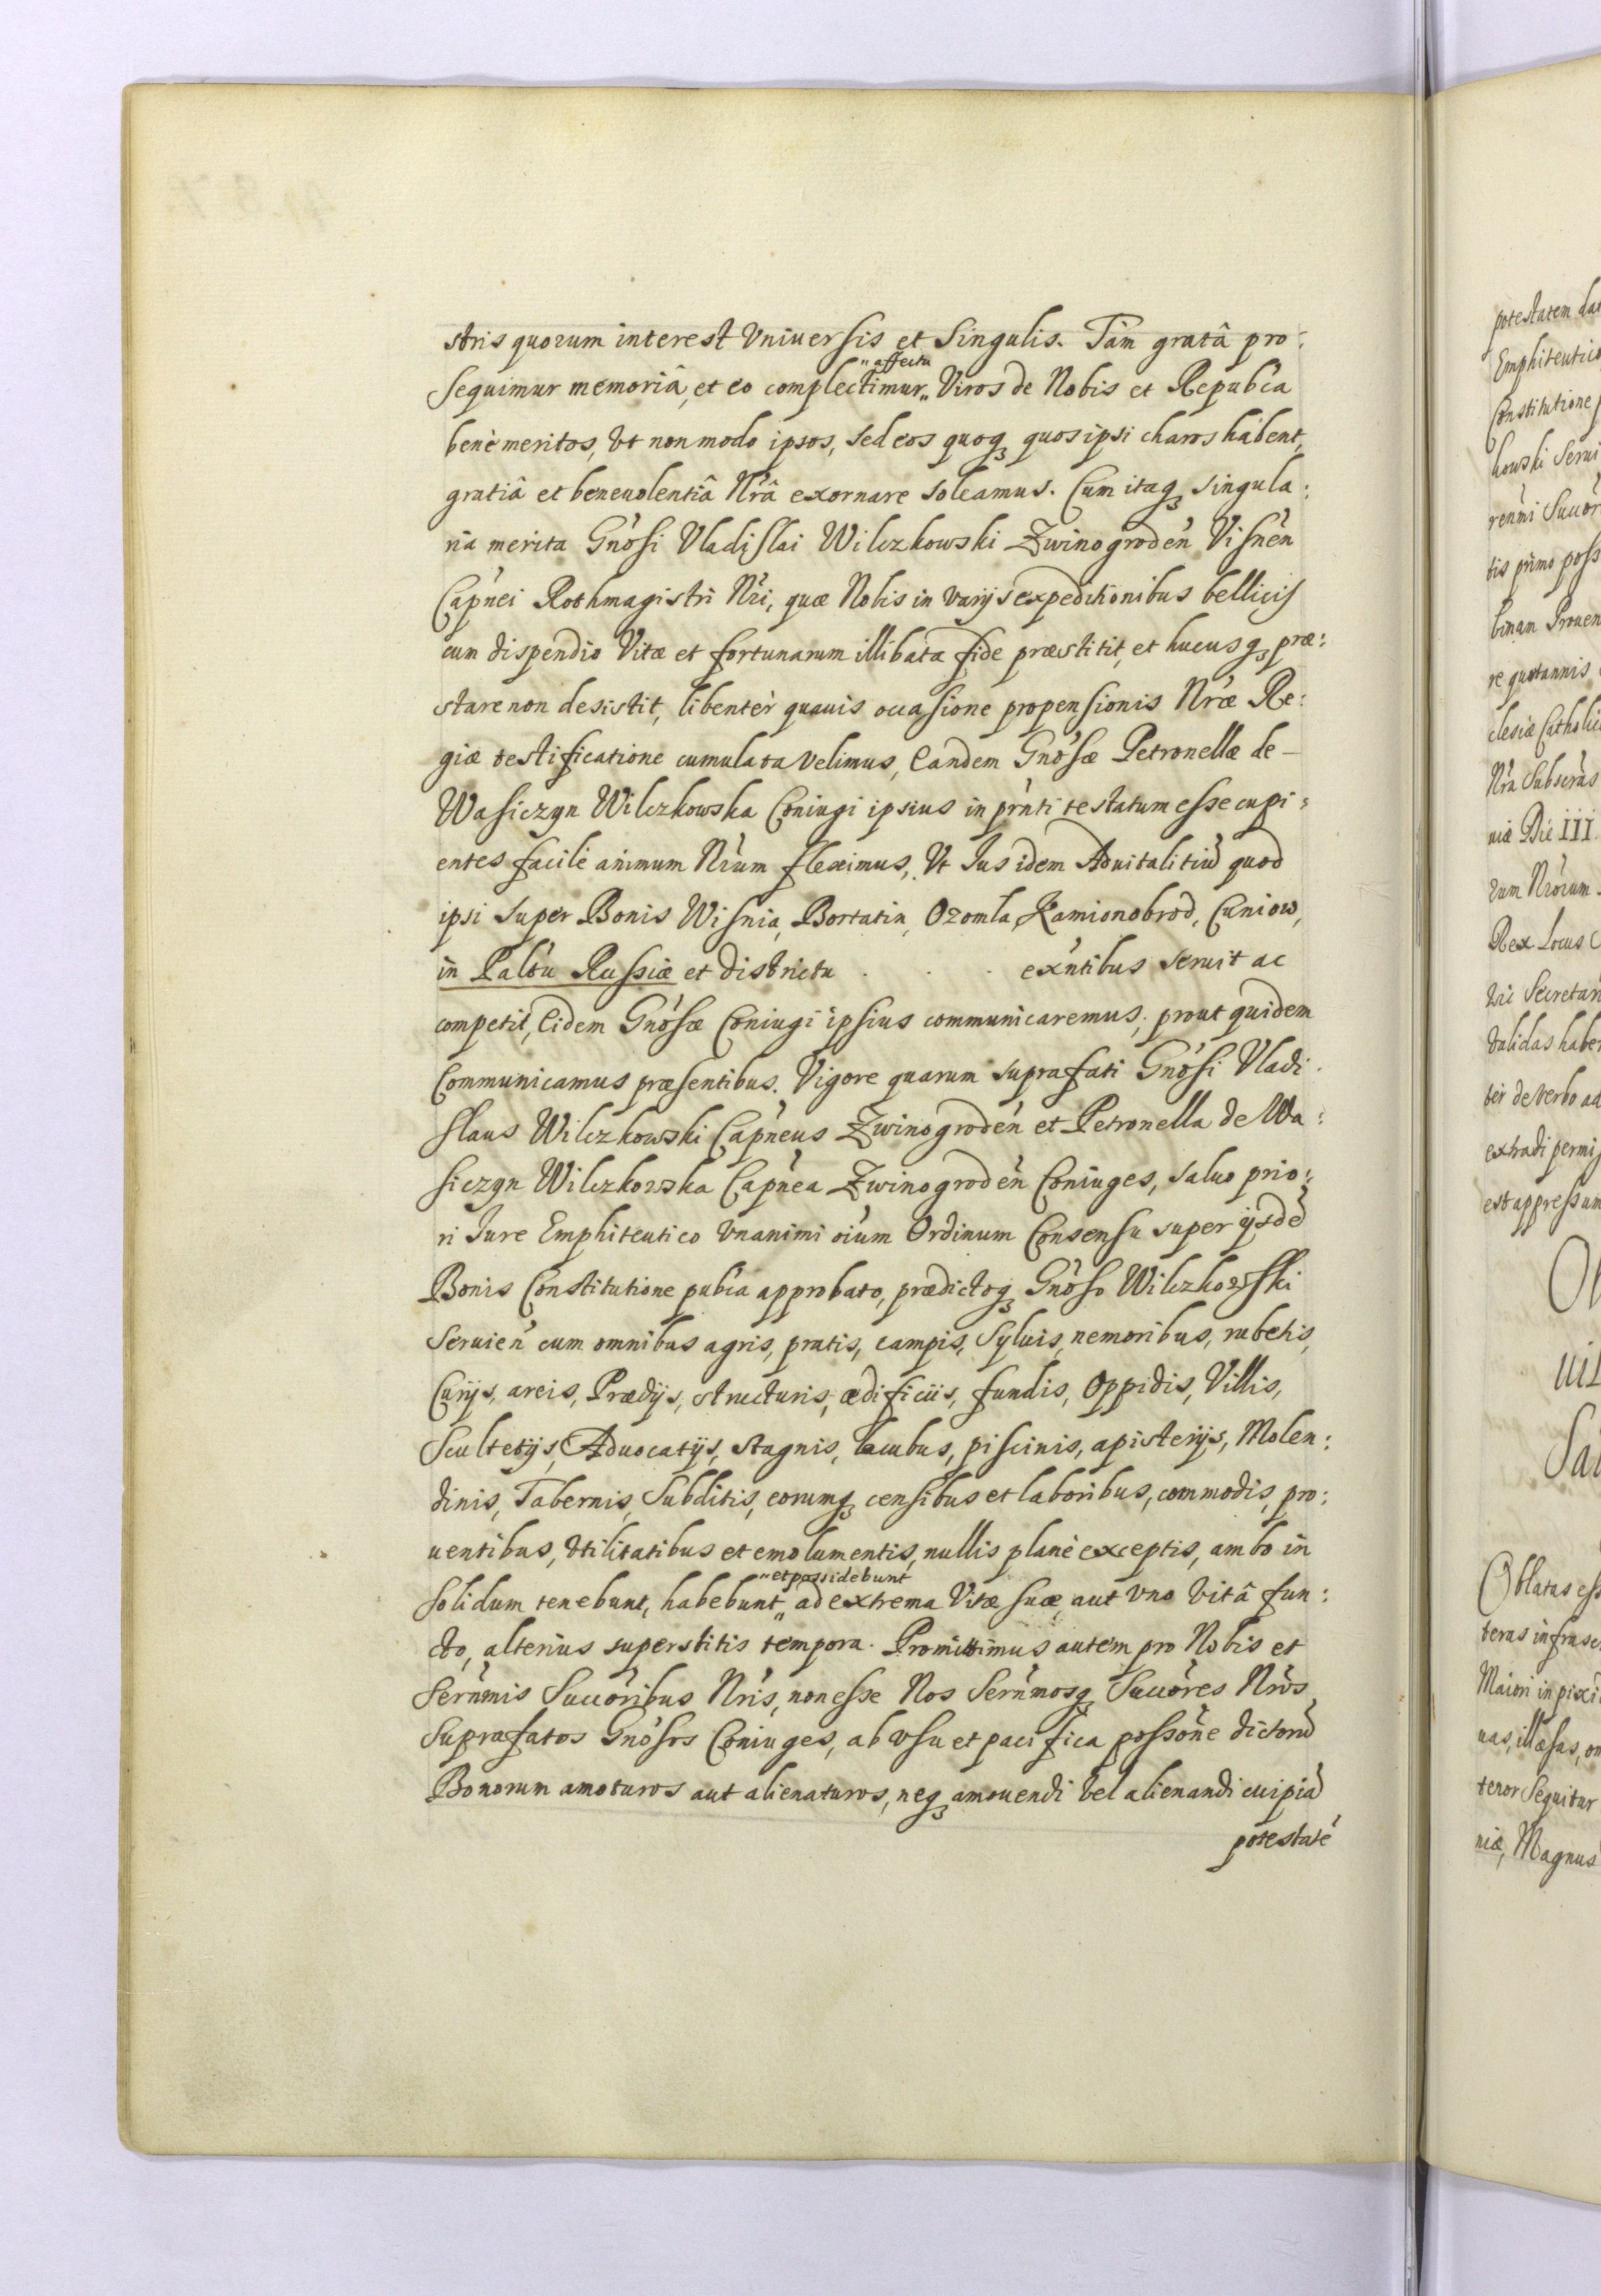 stris quorum interest Vniuersis et Singulis. Tàm gratâ pro:
sequimur memoriâ, et eo complectimur „affectu„ Viros de Nobis et Repub̃ca
benè meritos, Vt non modo ipsos, sed eos quoq3 quos ipsi charos habent,
gratiâ et beneuolentiâ Nr̃â exornare soleamus. Cum itaq3 singula:
ria merita Gnõsi Vladislai Wilczkowski Zwinogrodeñ Visneñ
Cap̃nei Rothmagistri Nr̃i, quæ Nobis in varijs expeditionibus bellicis
cum dispendio Vitæ et fortunarum illibata fide præstitit, et hucusq3 præ:
stare non desistit, libentèr quauis occasione propensionis Nr̃æ Re:
giæ testificatione cumulata velimus, Eandem Gnõsæ Petronellæ de
Wasiczyn Wilczkowska Coniugi ipsius in pr̃nti testatum esse cupi:
entes facilè animum Nr̃um fleximus, Vt Ius idem Aduitalitiũ quod
ipsi super Bonis Wisnia, Bortatin, Ozomla, Kamionobrod, Cuniow,
in Paltũ Russiæ et districtu . . . exñtibus seruit ac
competit, Eidem Gnõsæ Coniugi ipsius communicaremus, prout quidem
Communicamus præsentibus. Vigore quarum suprafati Gnõsi Vladi
slaus Wilczkowski Cap̃neus Zwinogrodeñ et Petronella de Wa:
siczyn Wilczkowska Cap̃nea Zwinogrodeñ Coniuges, saluo prio:
ri Iure Emphiteutico vnanimi oĩum Ordinum Consensu super ijsdẽ
Bonis Constitutione pub̃ca approbato, prædictoq3 Gnõso Wilczkowski
Seruieñ cum omnibus agris, pratis, campis, Syluis, nemoribus, rubetis,
Curijs, areis, Prædijs, structuris, ædificiis, fundis, Oppidis, Villis,
Scultetijs, Aduocatijs, stagnis, lacubus, piscinis, apisterijs, Molen:
dinis, Tabernis, Subditis, eorumq3 censibus et laboribus, commodis, pro:
uentibus, Vtilitatibus et emolumentis, nullis planè exceptis, ambo in
solidum tenebunt, habebunt „et possidebunt„ ad extrema Vitæ suæ, aut vno Vitâ fun:
cto, alterius superstitis tempora. Promittimus autem pro Nobis et
Sereñmis Succõribus Nr̃is, non esse Nos Sereñmosq3 Succõres Nr̃os
suprafatos Gnõsos Coniuges, ab vsu et pacifica possõne dictorũ
Bonorum amoturos aut alienaturos, neq3 amouendi vel alienandi cuipiã
potestatẽ
potestatem
Emphiteutic
Constitutione
kowski Serui
reñmi Succõr
tis primo poss
re quotannis
clesiæ Catholi
Nr̃a Subscr̃as
Die III
rum Nr̃orum
Rex Locus
Secretar
validas habe
ter de verbo ad
extradi permi
est appressum
Oblatus ess
teras infrasc
Maiori in pixi
uas, illæsas, om
tenor sequitur
niæ, Magnus